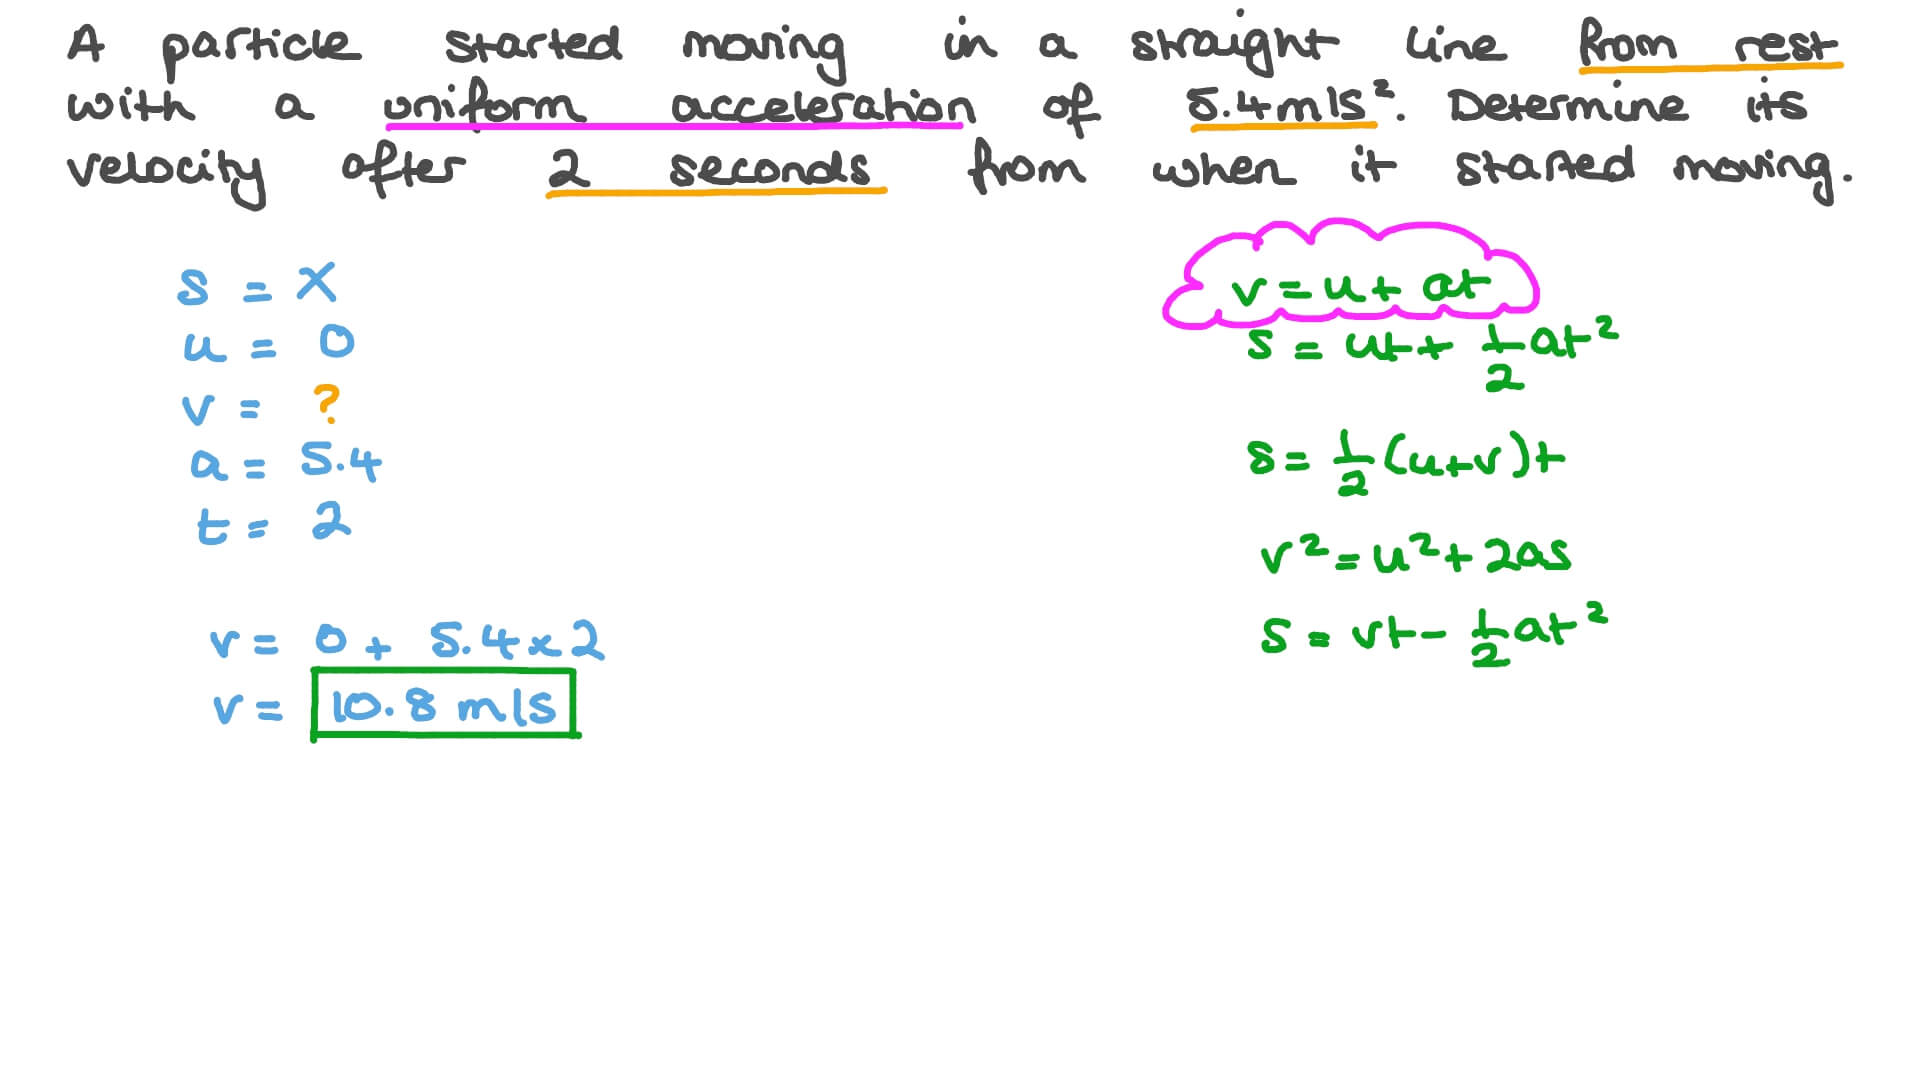 A particle started moving in a straight line from rest
with a uniform acceleration of 5.4m/s². Determine its
velocity after 2 seconds from when it started moving.
s = X
u = 0
v = ?
a = 5.4
t = 2
v = 0 + 5.4 x 2
v = 10.8 m/s
v = u + at
s = ut + 1/2 at²
s = 1/2 (u+v)t
v² = u² + 2as
s = vt - 1/2 at²